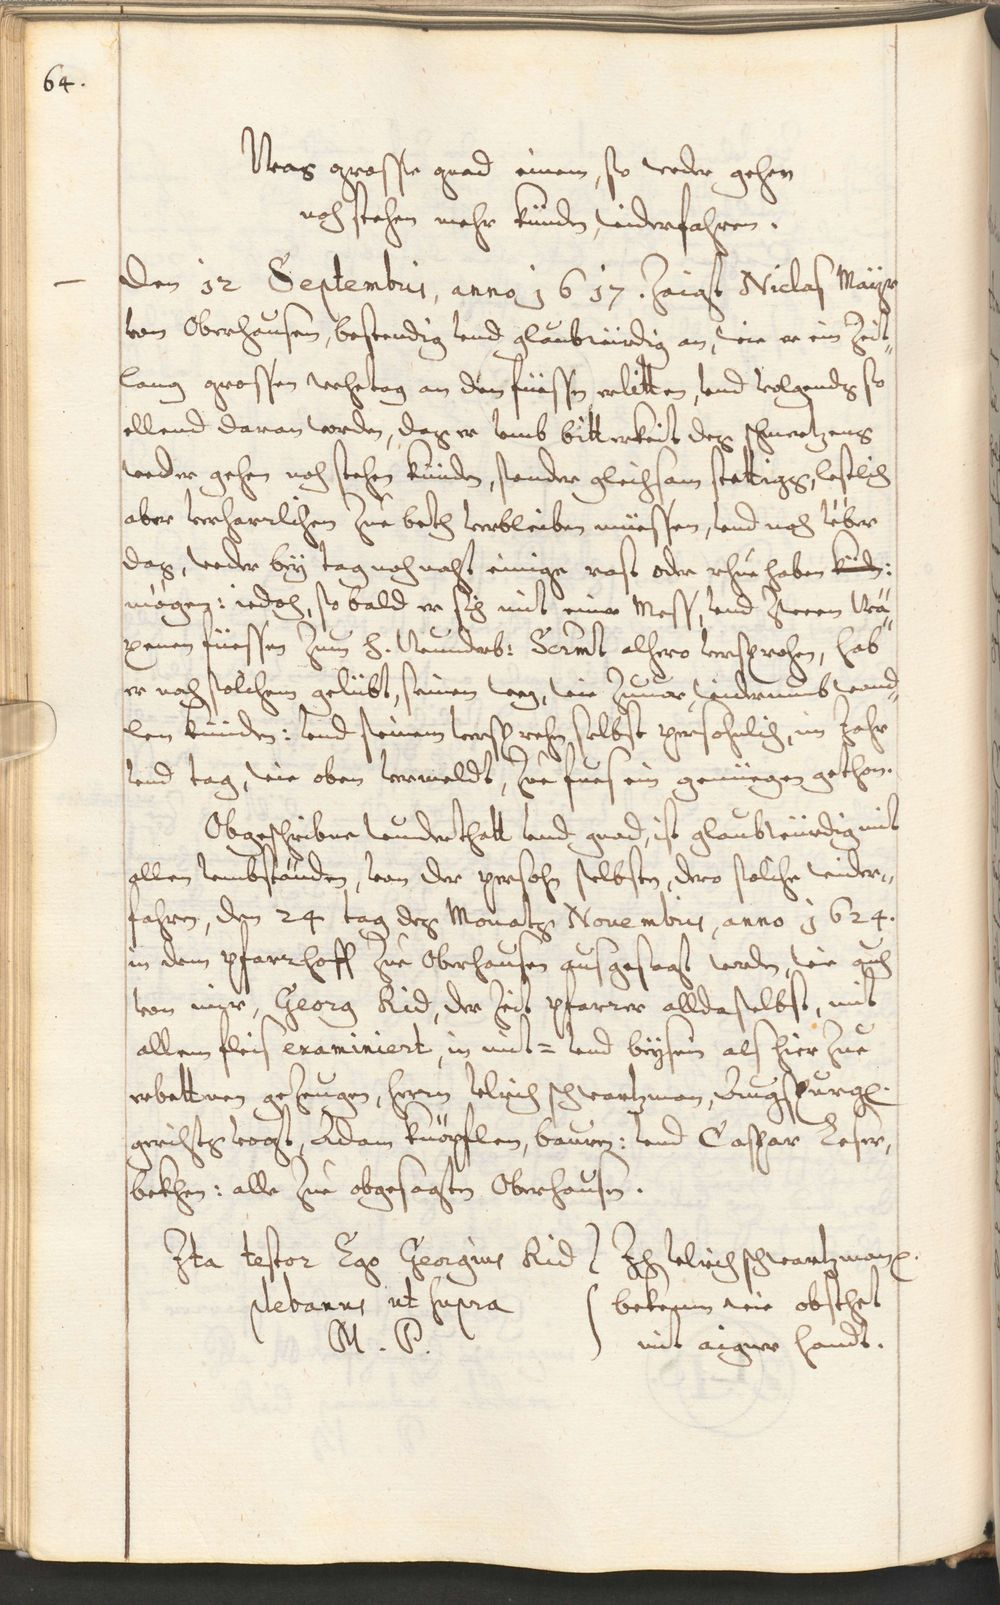 64.
Was grosse gnad einem, so weder gehen
noch stehen mehr künden, widerfahren.
Den 12 Septembris, anno 1617. Zaigt Niclaß Mäÿr
von Oberhausen, bestendig vnd glaubwürdig an, wie er ein Zeit„
lang grossen wehetag an den füessen erlitten, vnd volgends so
ellend daran worden, das er vmb bitterkeit des schmertzens
weder gehen noch stehen künden, sonder gleichsam stettigs, letstlich
aber verharrlichen zue beth verbleiben müessen, vnd noch vber
das, weder beÿ tag noch nacht einige rast oder rhue haben künden:
mögen: iedoch, so bald er sich mit einer Mess, vnd Jreen Wä„
xenen füessen zum H. Wunderb: Sacrmt alhero versprochen, hab
er nach solchem gelübt, seinen weg, wie zuuor, widerumb wand„
len künden: vnd seinem versprechen selbst persohnlich, im Jahr
vnd tag, wie oben vermeldt, zue fues ein genüegen gethon.
Obgeschribne wunderthatt vnd gnad, ist glaubwürdig mit
allen vmbständen, von der persohn selbsten, dero solche wider„
fahren, den 24 tag des Monats Nouembris, anno 1624.
in dem pfarrhoff zue Oberhausen ausgesagt worden, wie auch
von mir, Georg Rid, der Zeit pfarrer alldaselbst, mit
allem fleis examiniert, in mit= vnd beÿsein als hier zue
erbettnen gezeugen, herrn Vlrich schwartzman, Augspurg.
gerichts vogt, Adam knöpflen, bauren: vnd Caspar Leser,
bekhen: alle zue obgesagten Oberhausen.
Ita testor Ego Georgius Rid
plebanus ut supra
M. P.
Jch Vlrich schwartzman
bekenn wie obsthet
mit aigner handt.